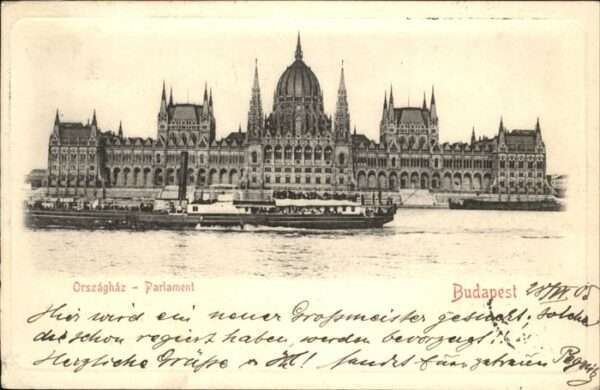 Országház - Parlament
Budapest
Hier wird ein neuer Großmeister gesucht; solche
die schon regiert haben, werden bevorzugt!
Herzliche Grüße u. sendet getreuer